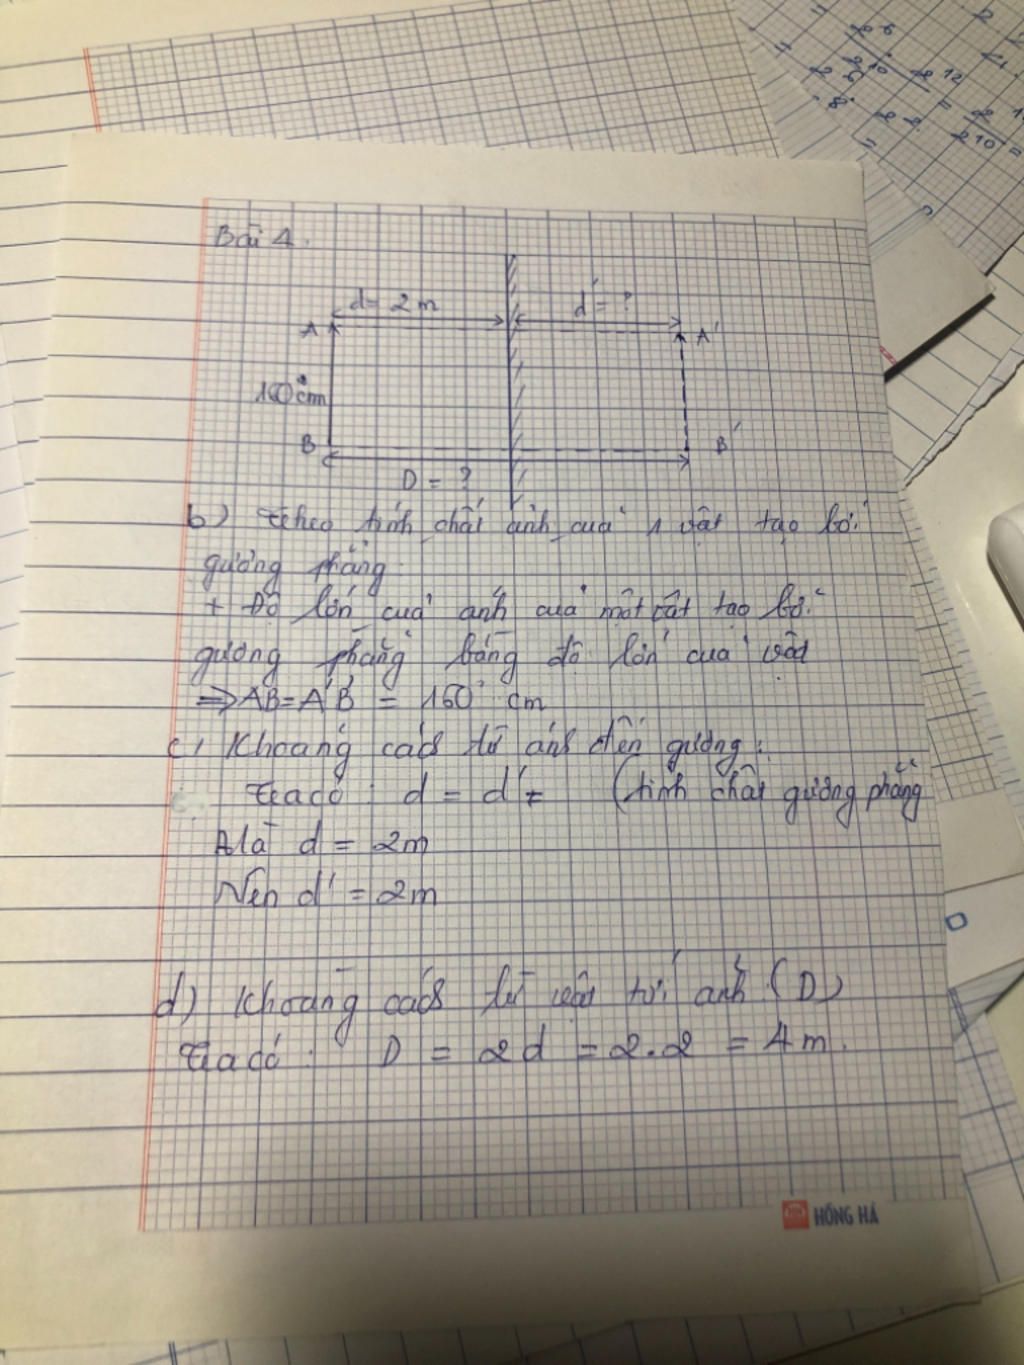 Bài 4.
d = 2 m
d' = ?
A
A'
160 cm
B
B'
D = ?
b) Theo tính chất ảnh của 1 vật tạo bởi
gương phẳng
+ Độ lớn của ảnh của một vật tạo bởi
gương phẳng bằng độ lớn của vật
=> AB = A'B' = 160 cm
c) Khoảng cách từ ảnh đến gương:
Ta có: d = d' = (tính chất gương phẳng
Mà d = 2m
Nên d' = 2m
d) Khoảng cách từ vật tới ảnh (D)
Ta có: D = 2d = 2.2 = 4m.
HỒNG HÀ